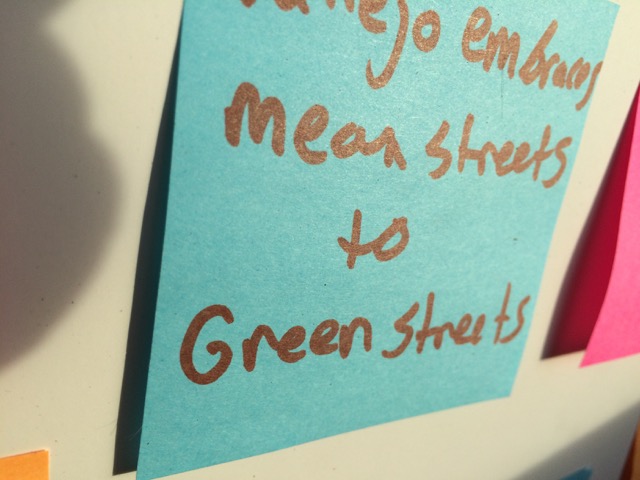 Vallejo embraces
Mean streets
to
Green streets